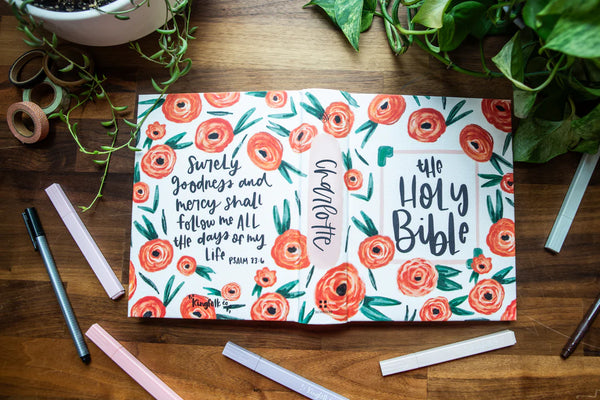 Surely
goodness and
mercy shall
follow me All
the days of my
life
PSALM 23:6
Kingfolk co.
Charlotte
the
HOLY
Bible